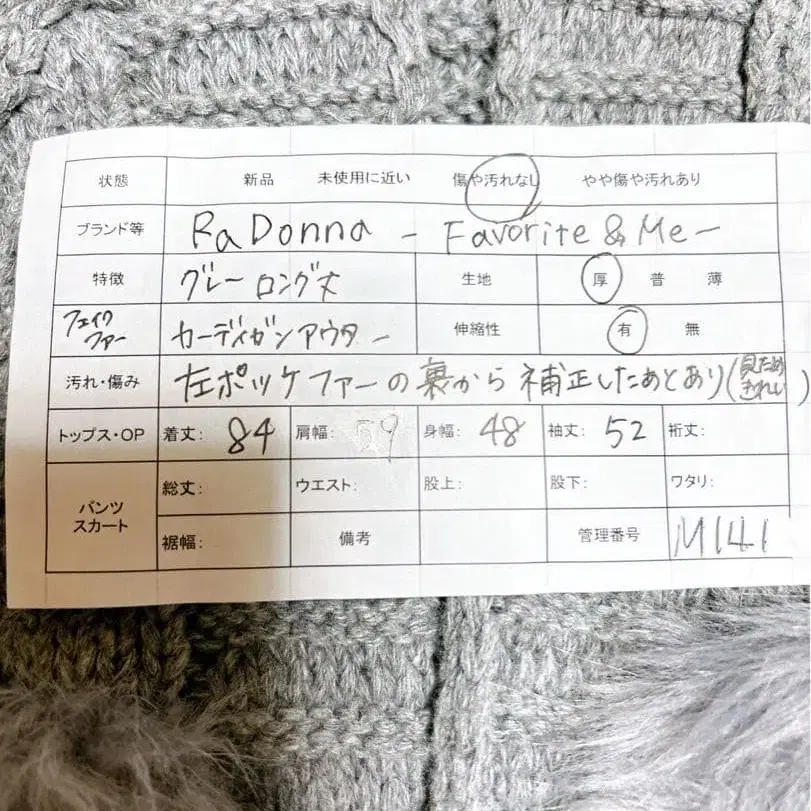 状態 新品 未使用に近い 傷や汚れなし やや傷や汚れあり
ブランド等 RaDonna - Favorite & Me -
特徴 グレー ロング丈 生地 厚 普 薄
フェイクファー カーディガンアウター 伸縮性 有 無
汚れ・傷み 左ポッケファーの裏から補正したあとあり(見ためきれい)
トップス・OP 着丈: 84 肩幅: 59 身幅: 48 袖丈: 52 裄丈:
パンツ スカート 総丈: ウエスト: 股上: 股下: ワタリ:
裾幅: 備考 管理番号 M141